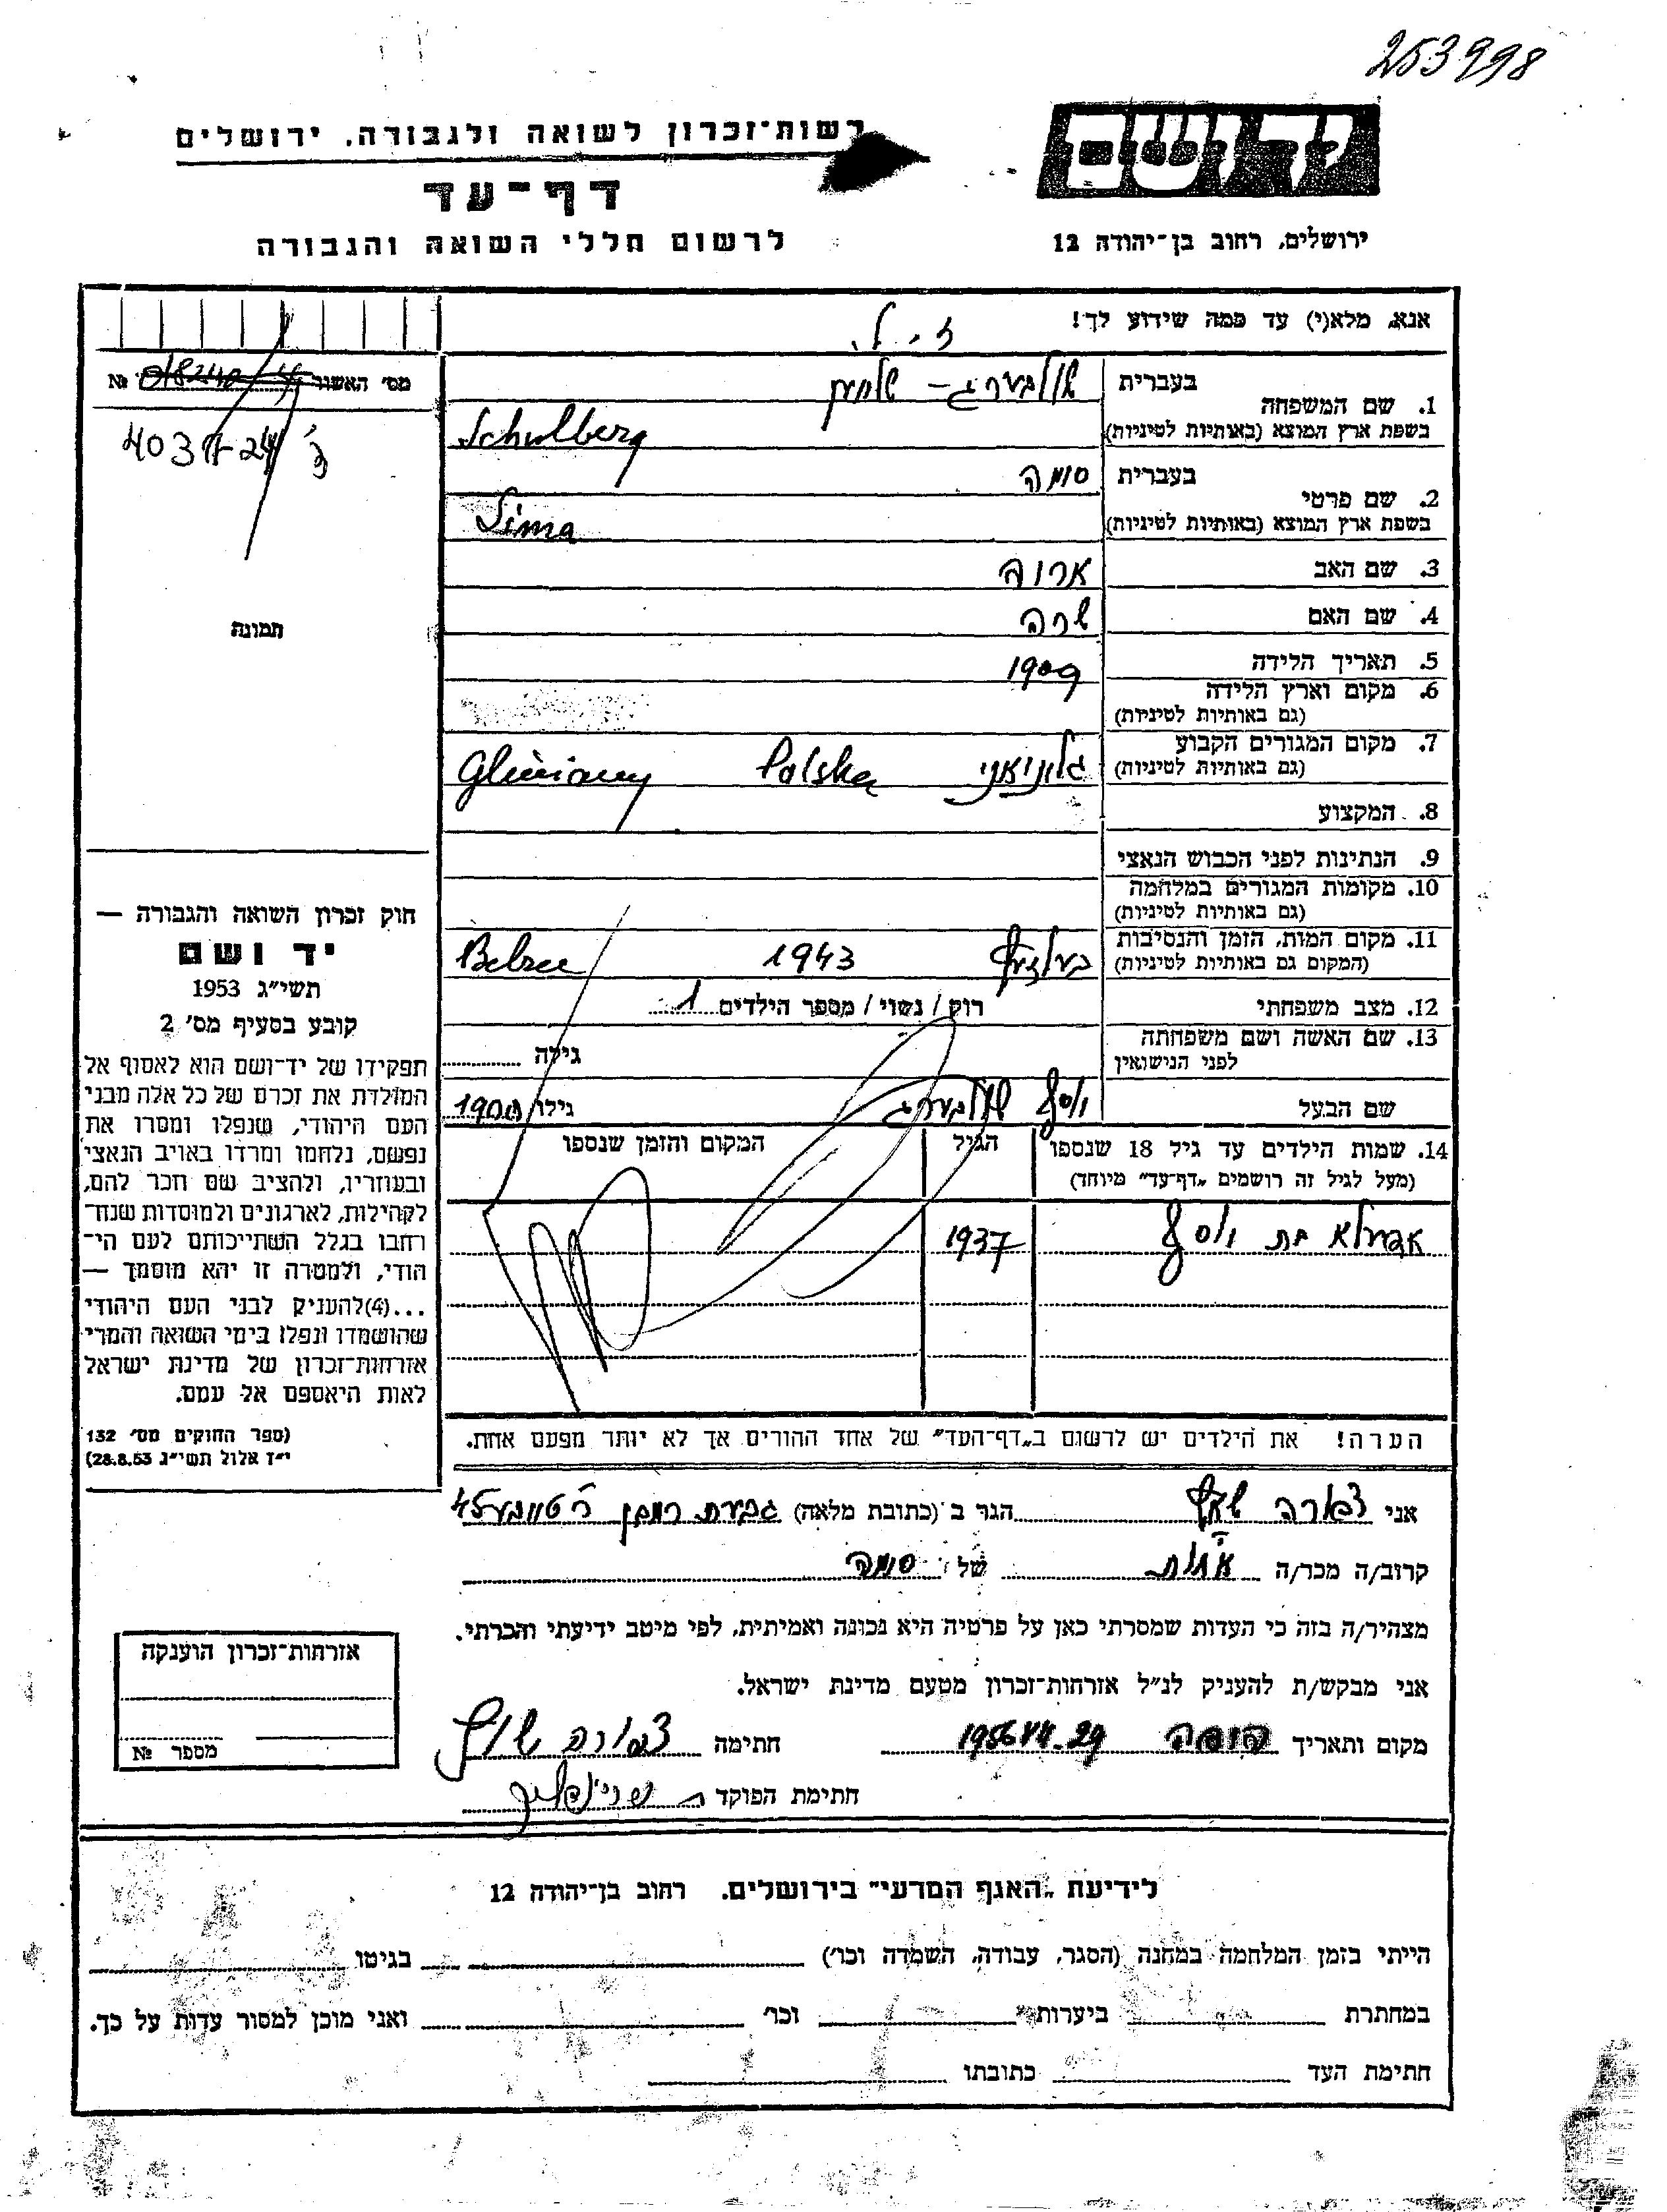 253998
רשות־זכרון לשואה ולגבורה, ירושלים
יד ושם
דף־עד
לרשום חללי השואה והגבורה
ירושלים, רחוב בן־יהודה 12
אנא, מלא(י) עד כמה שידוע לך!
ז.ל.
מס' האשור №
403
תמונה
1. שם המשפחה
בעברית שולברג –
בשפת ארץ המוצא (באותיות לטיניות) Schulberg
2. שם פרטי
בעברית סימה
בשפת ארץ המוצא (באותיות לטיניות) Sima
3. שם האב
4. שם האם שרה
5. תאריך הלידה 1909
6. מקום וארץ הלידה
(גם באותיות לטיניות)
7. מקום המגורים הקבוע
(גם באותיות לטיניות) גליניאני Polska Gliniany
8. המקצוע
9. הנתינות לפני הכבוש הנאצי
10. מקומות המגורים במלחמה
(גם באותיות לטיניות)
11. מקום המות, הזמן והנסיבות
(המקום גם באותיות לטיניות) 1943 Belzec
12. מצב משפחתי רוק / נשוי / מספר הילדים 1
13. שם האשה ושם משפחתה
לפני הנישואין גילה
שם הבעל יוסף שולברג גילו
14. שמות הילדים עד גיל 18 שנספו הגיל המקום והזמן שנספו
(מעל לגיל זה רושמים „דף־עד" מיוחד)
בת יוסף 1937
הערה! את הילדים יש לרשום ב„דף־העד" של אחד ההורים אך לא יותר מפעם אחת.
חוק זכרון השואה והגבורה —
יד ושם
תשי"ג 1953
קובע בסעיף מס' 2
תפקידו של יד־ושם הוא לאסוף אל
המולדת את זכרם של כל אלה מבני
העם היהודי, שנפלו ומסרו את
נפשם, נלחמו ומרדו באויב הנאצי
ובעוזריו, ולהציב שם וזכר להם,
לקהילות, לארגונים ולמוסדות שנח־
רבו בגלל השתייכותם לעם הי־
הודי, ולמטרה זו יהא מוסמך —
...(4) להעניק לבני העם היהודי
שהושמדו ונפלו בימי השואה והמרי
אזרחות־זכרון של מדינת ישראל
לאות היאספם אל עמם.
(ספר החוקים מס' 132
י"ז אלול תשי"ג 28.8.53)
אני צפורה הגר ב (כתובת מלאה) גבעת 45
קרוב/ה מכר/ה אחות של סימה
מצהיר/ה בזה כי העדות שמסרתי כאן על פרטיה היא נכונה ואמיתית, לפי מיטב ידיעתי והכרתי.
אני מבקש/ת להעניק לנ"ל אזרחות־זכרון מטעם מדינת ישראל.
מקום ותאריך חיפה 29 1956 חתימה צפורה
חתימת הפוקד
אזרחות־זכרון הוענקה
מספר №
לידיעת „האגף המדעי" בירושלים, רחוב בן־יהודה 12
הייתי בזמן המלחמה במחנה (הסגר, עבודה, השמדה וכו') בגיטו
במחתרת ביערות וכו' ואני מוכן למסור עדות על כך.
חתימת העד כתובתו